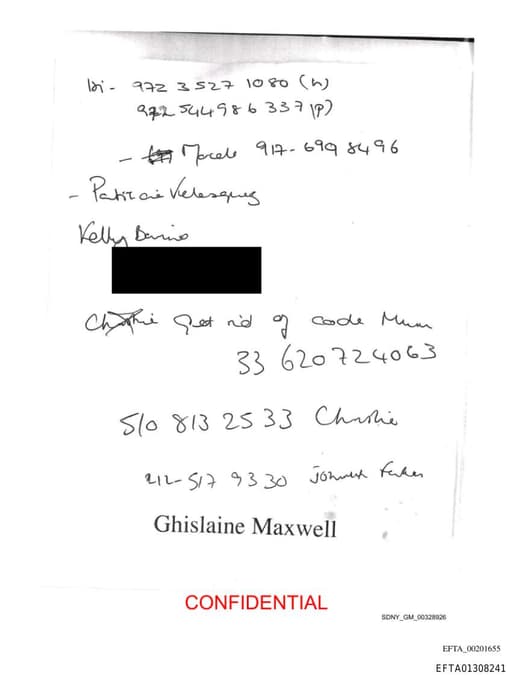 972 3 527 1080 (h)
972 544 986 337 (p)
- 917-690 8496
- Velasquez
Kelly
get rid of code Mum
33 620724063
510 813 2533 Christie
212-517 9330
Ghislaine Maxwell
CONFIDENTIAL
SDNY_GM_00328926
EFTA_00201655
EFTA01308241